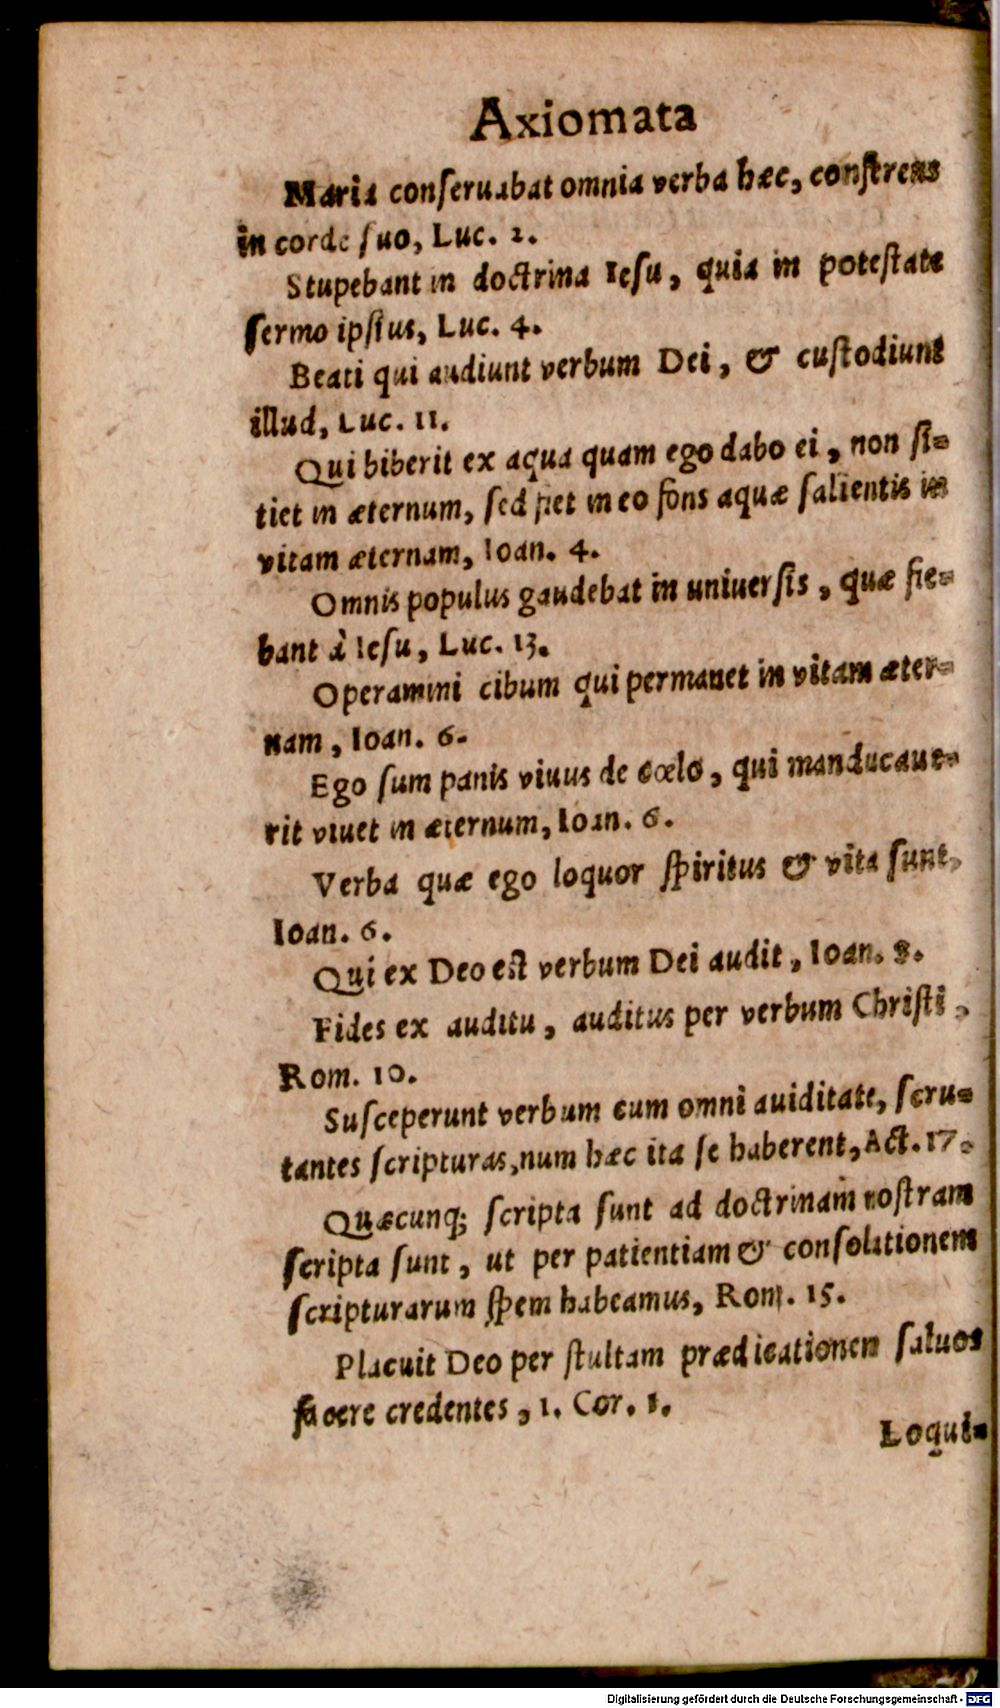 Axiomata
Maria conſeruabat omnia verba hæc, conferens
in corde ſuo, Luc. 2.
Stupebant in doctrina Ieſu, quia in poteſtate
ſermo ipſius, Luc. 4.
Beati qui audiunt verbum Dei, & cuſtodiunt
illud, Luc. 11.
Qui biberit ex aqua quam ego dabo ei, non ſi-
tiet in æternum, ſed fiet in eo fons aquæ ſalientis in
vitam æternam, Ioan. 4.
Omnis populus gaudebat in uniuerſis, quæ fie-
bant à Ieſu, Luc. 13.
Operamini cibum qui permanet in vitam æter-
nam, Ioan. 6.
Ego ſum panis viuus de cœlo, qui manducaue-
rit viuet in æternum, Ioan. 6.
Verba quæ ego loquor ſpiritus & vita ſunt,
Ioan. 6.
Qui ex Deo eſt verbum Dei audit, Ioan. 8.
Fides ex auditu, auditus per verbum Chriſti,
Rom. 10.
Suſceperunt verbum cum omni auiditate, ſcru-
tantes ſcripturas, num hæc ita ſe haberent, Act. 17.
Quæcunq; ſcripta ſunt ad doctrinam noſtram
ſcripta ſunt, ut per patientiam & conſolationem
ſcripturarum ſpem habeamus, Rom. 15.
Placuit Deo per ſtultam prædicationen ſaluos
facere credentes, 1. Cor. 1.
Loqui-
Digitalisierung gefördert durch die Deutsche Forschungsgemeinschaft - DFG